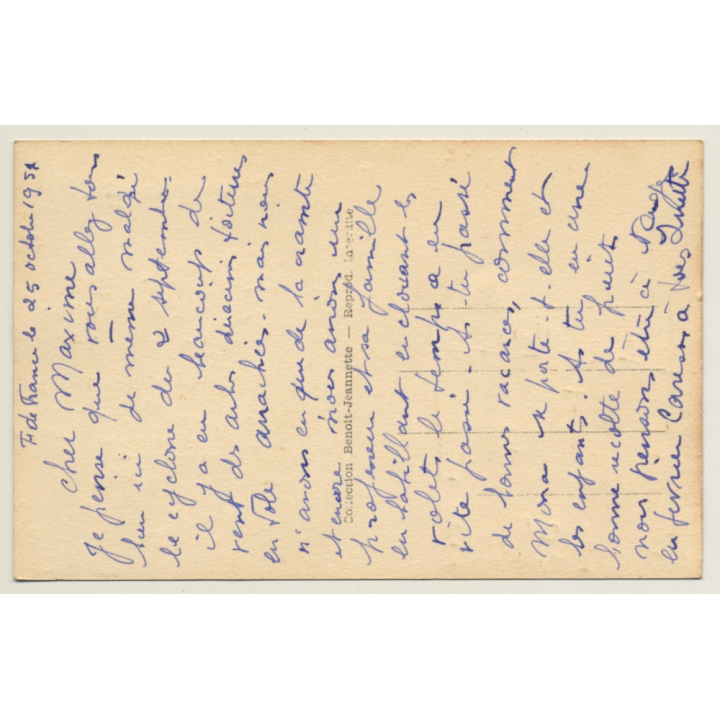 Ft de France le 25 octobre 1951
Cher Maxime
Je pense que vous allez tous
bien ici de même malgré
le cyclone du 2 septembre.
il y a eu beaucoup de
vent des arbres déracinés toitures
en tôle arrachées. mais nous
n'avons eu que de la crainte
et encore nous avions un
professeur et sa famille
en babillant en clouant les
volets le temps a vu
vite passé. As-tu passé
de bonnes vacances, comment
Mona se porte-t-elle et
les enfants. As tu eu une
bonne récolte de fruits
nous pensons être à
en février Caresses à tous
Collection Benoit-Jeannette — Reprod. interdite